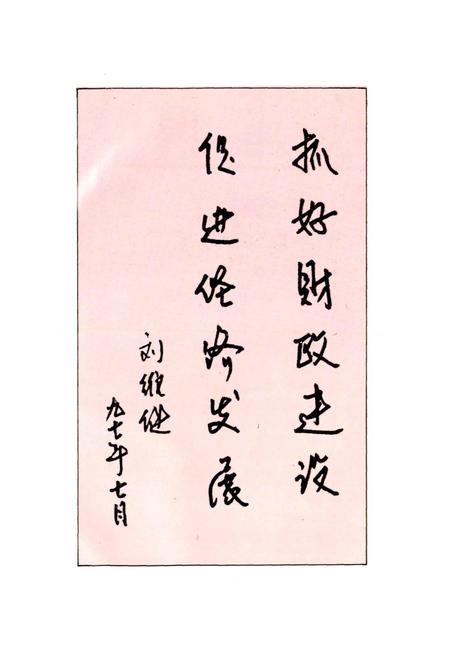 抓好財政建设
促进经济发展
刘继
九七年七月